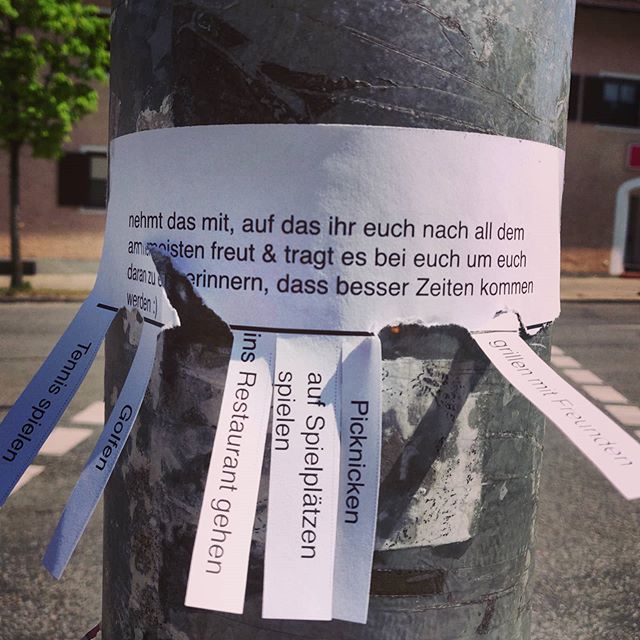 nehmt das mit, auf das ihr euch nach all dem
am meisten freut & tragt es bei euch um euch
daran zu erinnern, dass besser Zeiten kommen
werden :)
Tennis spielen
Golfen
ins Restaurant gehen
auf Spielplätzen
spielen
Picknicken
grillen mit Freunden